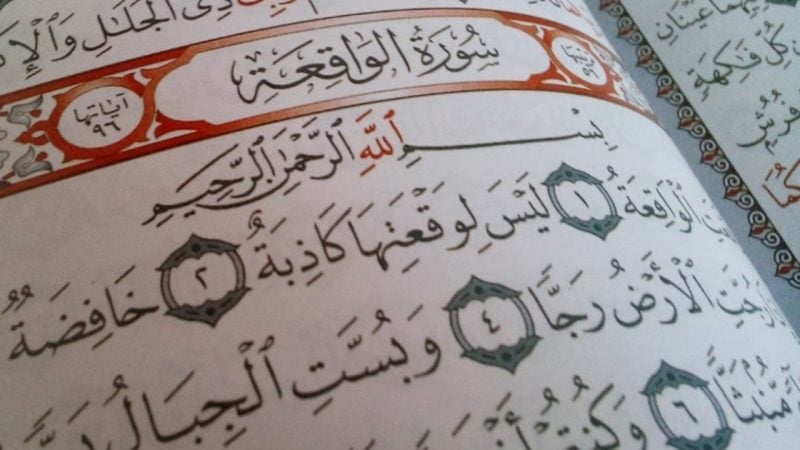 ذِى الْجَلَٰلِ وَالْإِكْ
سُورَةُ الوَاقِعَةِ
آيَاتُهَا ٩٦
بِسْمِ ٱللَّهِ ٱلرَّحْمَٰنِ ٱلرَّحِيمِ
ٱلْوَاقِعَةُ ١ لَيْسَ لِوَقْعَتِهَا كَاذِبَةٌ ٢ خَافِضَةٌ
رُجَّتِ ٱلْأَرْضُ رَجًّا ٤ وَبُسَّتِ ٱلْجِبَالُ
مُّنۢبَثًّا ٦ وَكُنتُمْ
فَٰكِهَةٍ